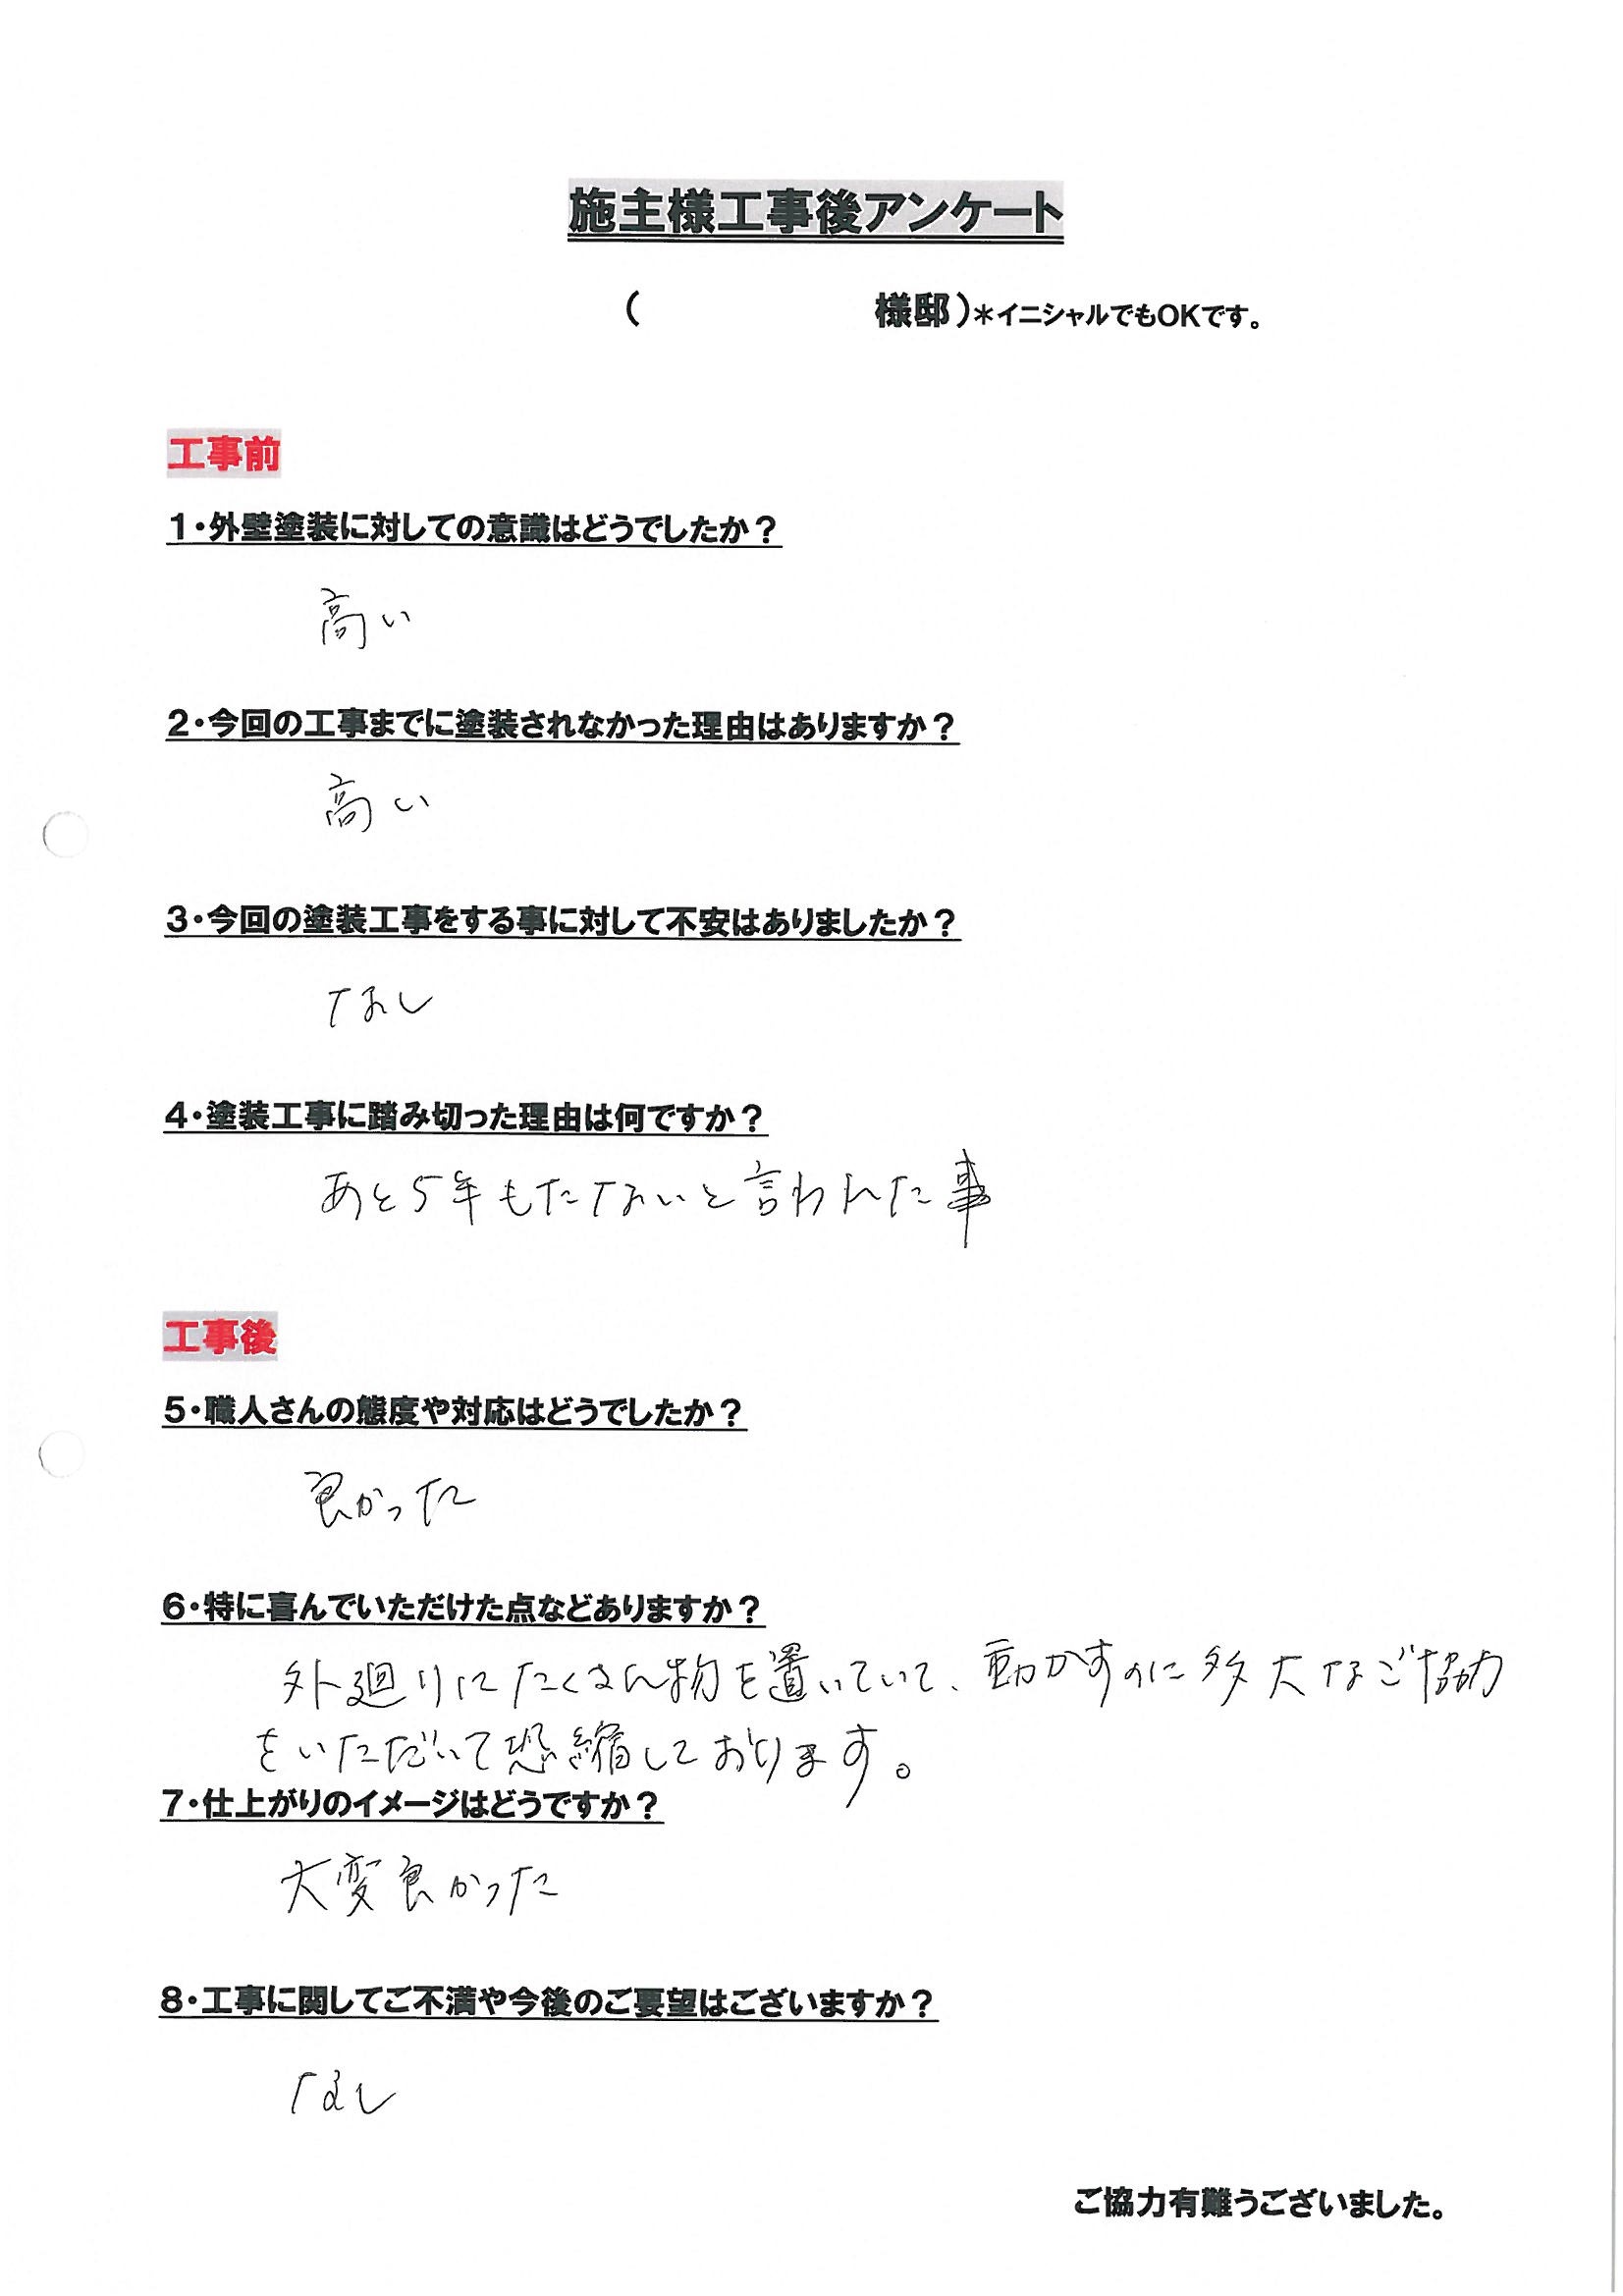 施主様工事後アンケート
(　　　　　　様邸)＊イニシャルでもOKです。
工事前
1・外壁塗装に対しての意識はどうでしたか？
高い
2・今回の工事までに塗装されなかった理由はありますか？
高い
3・今回の塗装工事をする事に対して不安はありましたか？
なし
4・塗装工事に踏み切った理由は何ですか？
あと5年もたないと言われた事
工事後
5・職人さんの態度や対応はどうでしたか？
良かった
6・特に喜んでいただけた点などありますか？
外廻りにたくさん物を置いていて、動かすのに多大なご協力
をいただいて恐縮しております。
7・仕上がりのイメージはどうですか？
大変良かった
8・工事に関してご不満や今後のご要望はございますか？
なし
ご協力有難うございました。